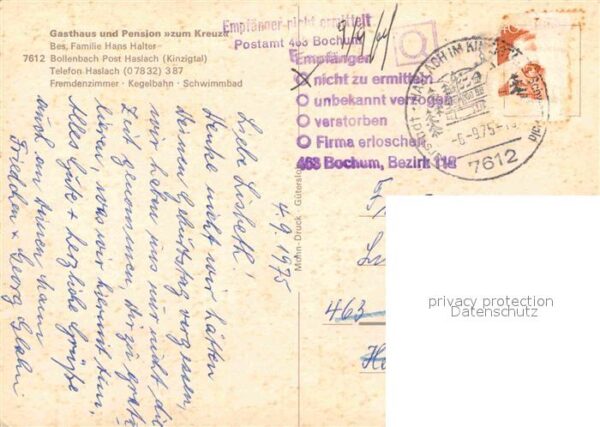 Gasthaus und Pension »zum Kreuz«
Bes. Familie Hans Halter
7612 Bollenbach Post Haslach (Kinzigtal)
Telefon Haslach (07832) 387
Fremdenzimmer · Kegelbahn · Schwimmbad
4.9.1975
Liebe Lisbeth!
Denke nicht wir hätten
Deinen Geburtstag vergessen,
wir haben uns nur nicht die
Zeit genommen, Dir zu gratu-
lieren, was wir hiermit tun.
Alles Gute + herzliche Grüße
auch an Deinen Mann
Friedchen + Georg
Mohn-Druck Gütersloh
Empfänger nicht ermittelt
Postamt 463 Bochum
Empfänger
nicht zu ermitteln
unbekannt verzogen
verstorben
Firma erloschen
463 Bochum, Bezirk 118
HASLACH IM KINZIGTAL
-6.-9.75-
7612
463
privacy protection
Datenschutz